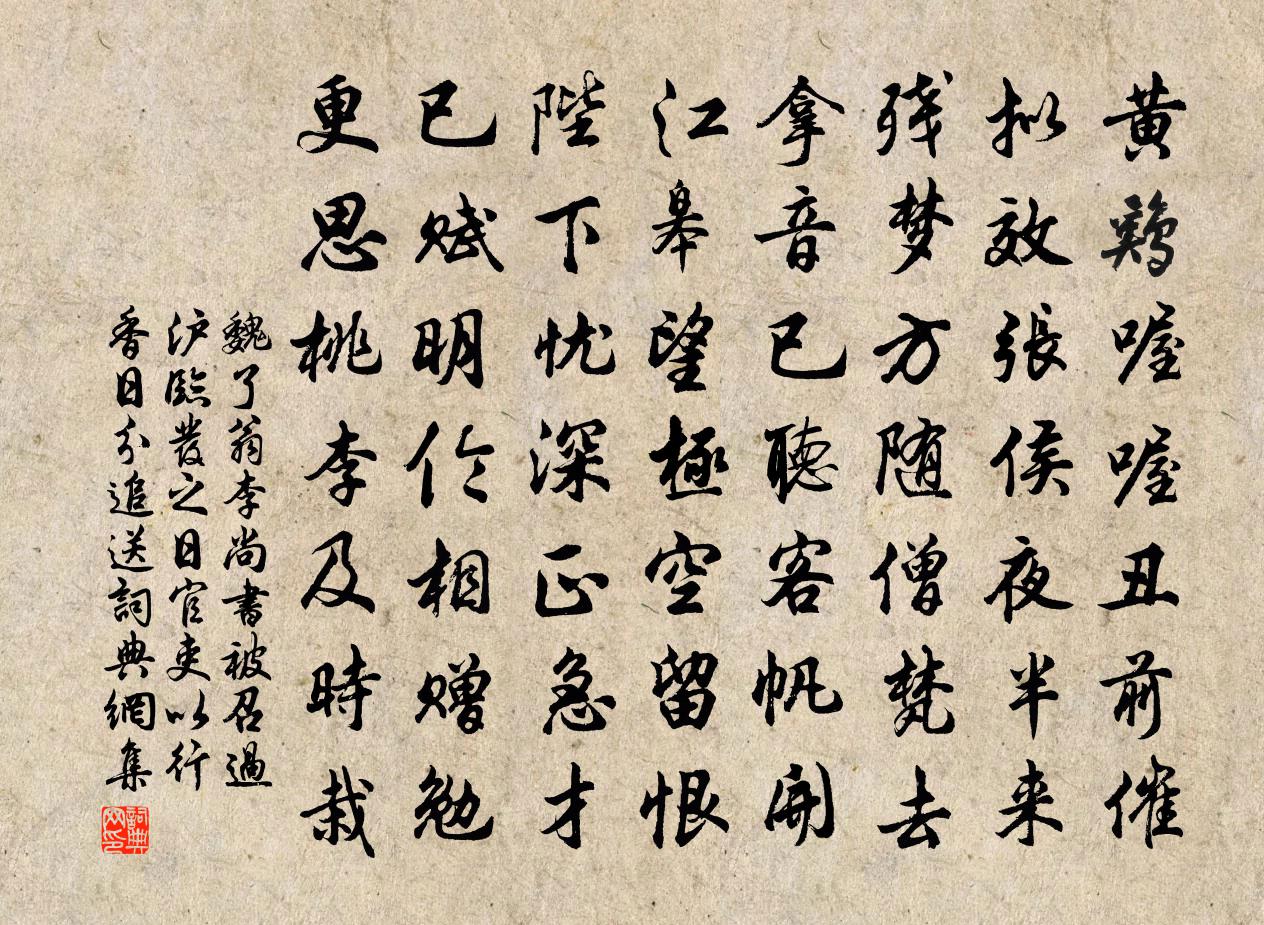 黄鷄喔喔丑前催
拟效張侯夜半来
残梦方随僧梵去
拿音已聽客帆開
江皋望極空留恨
陛下忧深正急才
已赋明伶相赠勉
更思桃李及時栽
魏了翁李尚書被召過
沪臨發之日官吏以行
香日分追送詞典網集
詞典
网印